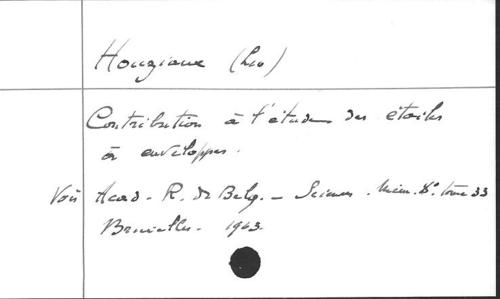 Houziaux (Léo)
Contribution à l'étude des étoiles
à enveloppes.
Voir Acad. R. de Belg. – Sciences. Mém. 8º. tome 33
Bruxelles. 1963.